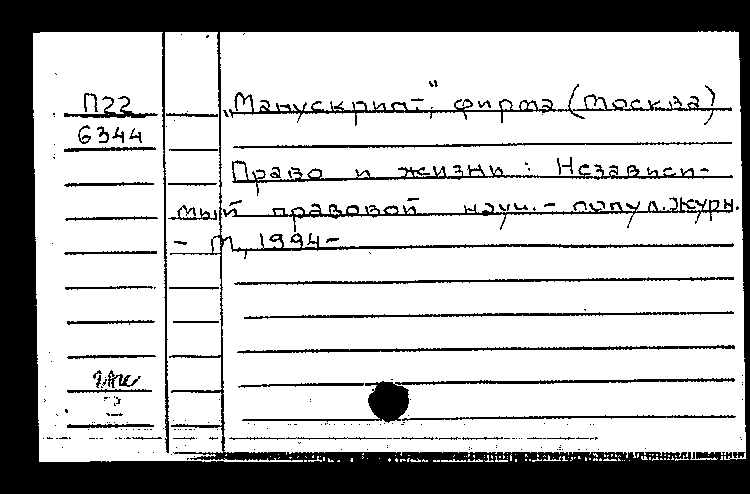 П22
6344
„Манускрипт", фирма (Москва)
Право и жизнь : Независи-
мый правовой науч.- попул.журн.
- М., 1994-